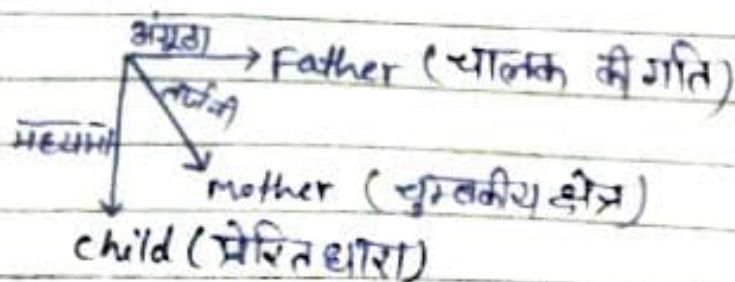 अंगूठा
Father (चालक की गति)
तर्जनी
मध्यमा
mother (चुम्बकीय क्षेत्र)
child (प्रेरित धारा)